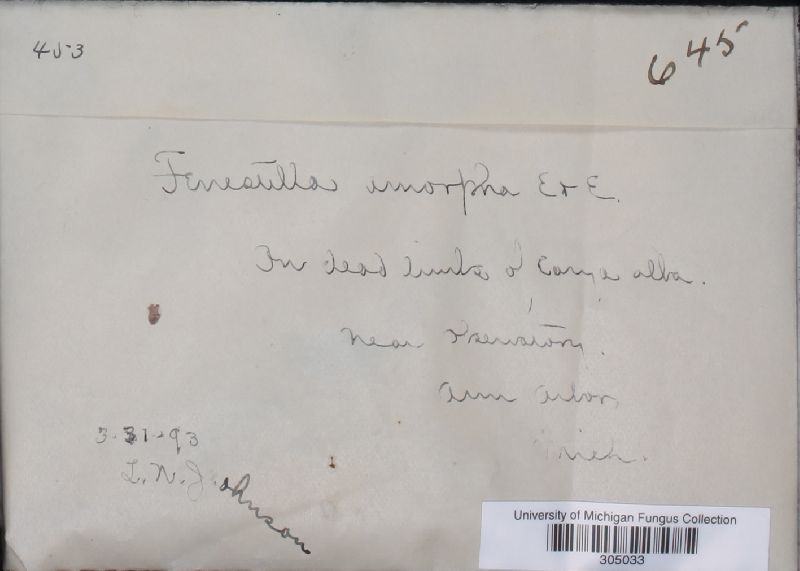 453
645
Fenestella amorpha E & E.
On dead limbs of Carya alba.
Near Observatory.
Ann Arbor,
Mich.
3-31-93
L.N. Johnson
University of Michigan Fungus Collection
305033